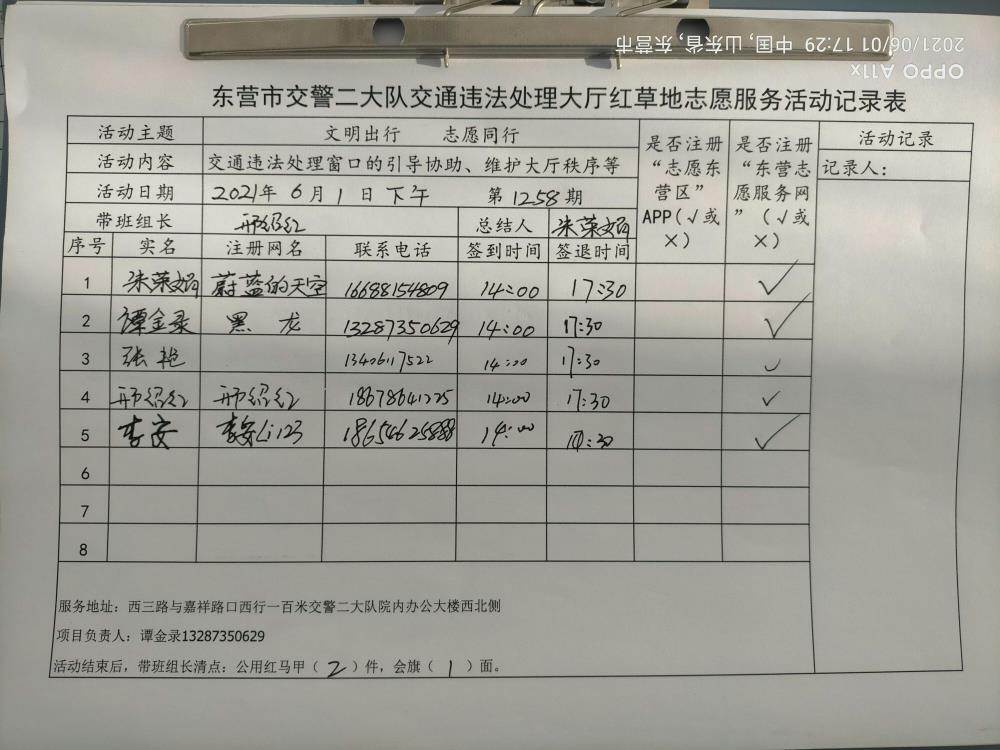 2021/06/01 17:29 中国, 山东省, 东营市
OPPO A11x
东营市交警二大队交通违法处理大厅红草地志愿服务活动记录表
活动主题 文明出行 志愿同行
活动内容 交通违法处理窗口的引导协助、维护大厅秩序等
活动日期 2021年 6月 1日 下午 第 1258 期
带班组长 邢绍红 总结人 朱荣娟
序号 实名 注册网名 联系电话 签到时间 签退时间
是否注册
“志愿东
营区”
APP(√或
×)
是否注册
“东营志
愿服务网
”(√或
×)
活动记录
记录人:
1 朱荣娟 蔚蓝的天空 16688154809 14:00 17:30 √
2 谭金录 黑龙 13287350629 14:00 17:30 √
3 张艳 13406117522 14:00 17:30 √
4 邢绍红 邢绍红 18678641225 14:00 17:30 √
5 李安 李安Li123 18654625888 14:00 17:30 √
6
7
8
服务地址:西三路与嘉祥路口西行一百米交警二大队院内办公大楼西北侧
项目负责人:谭金录13287350629
活动结束后,带班组长清点:公用红马甲(2)件,会旗(1)面。